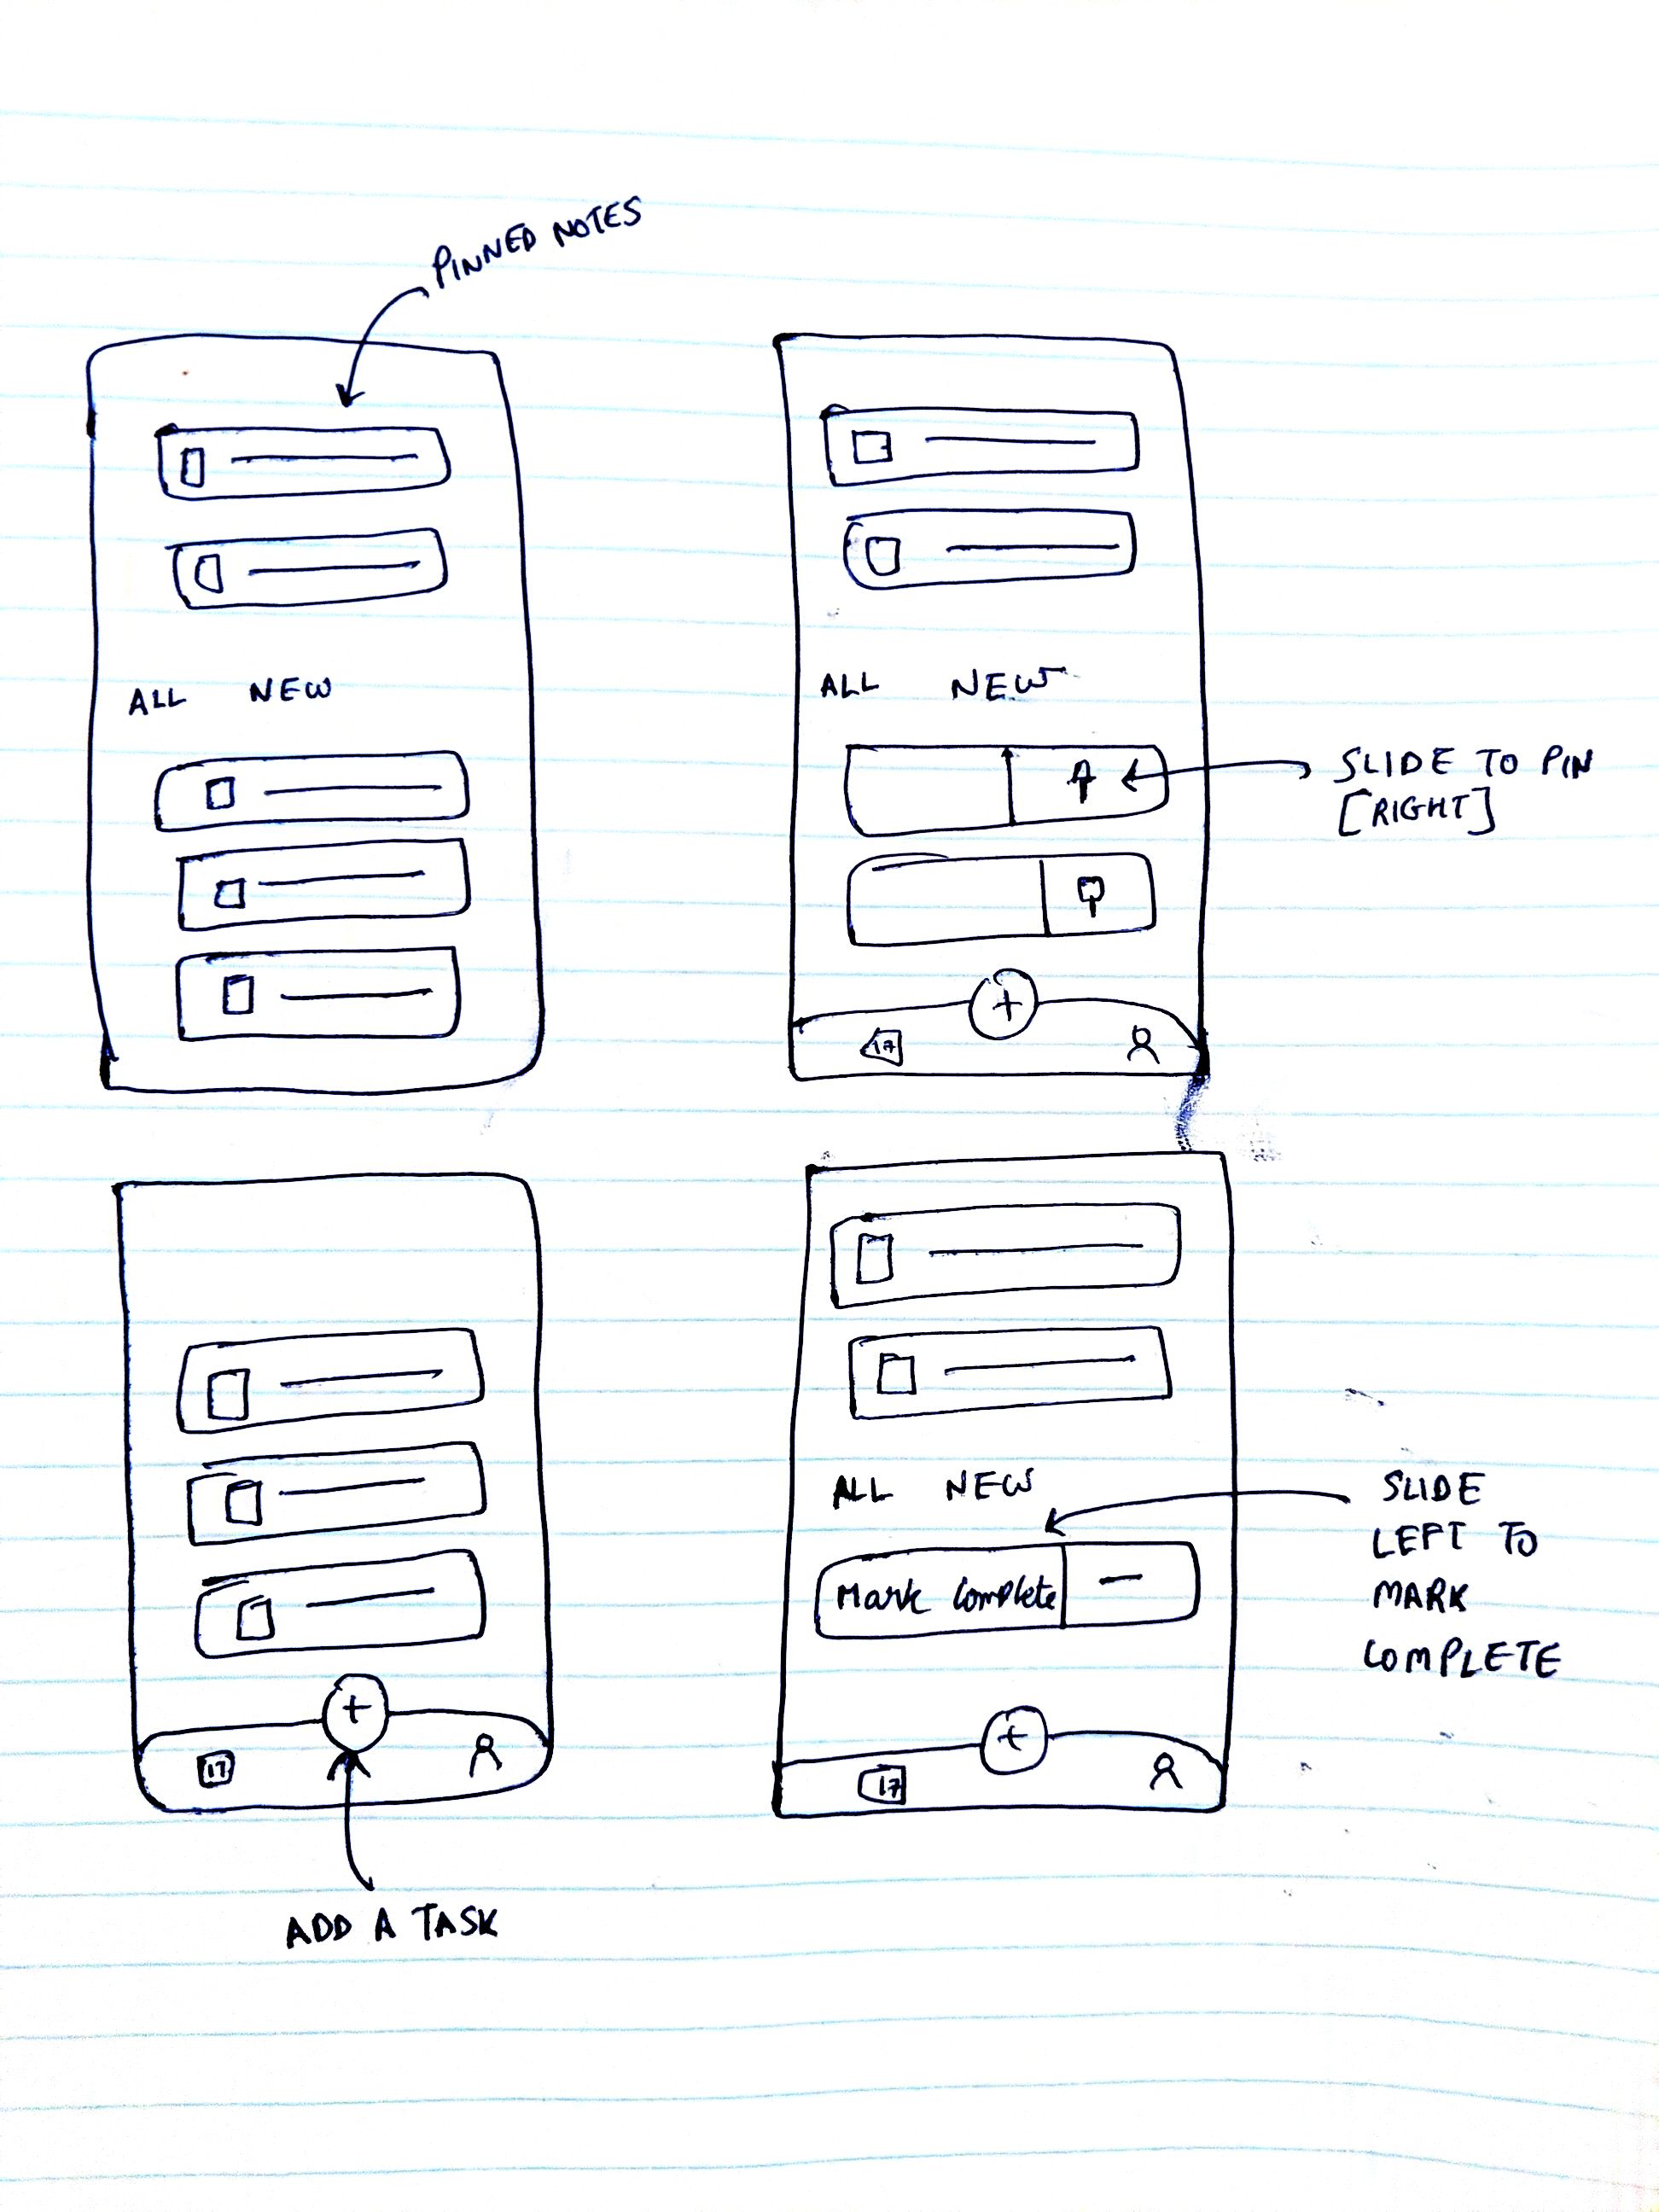 PINNED NOTES
ALL NEW
ALL NEW
SLIDE TO PIN
[RIGHT]
+
17
+
17
ADD A TASK
ALL NEW
Mark Complete
SLIDE
LEFT TO
MARK
COMPLETE
+
17